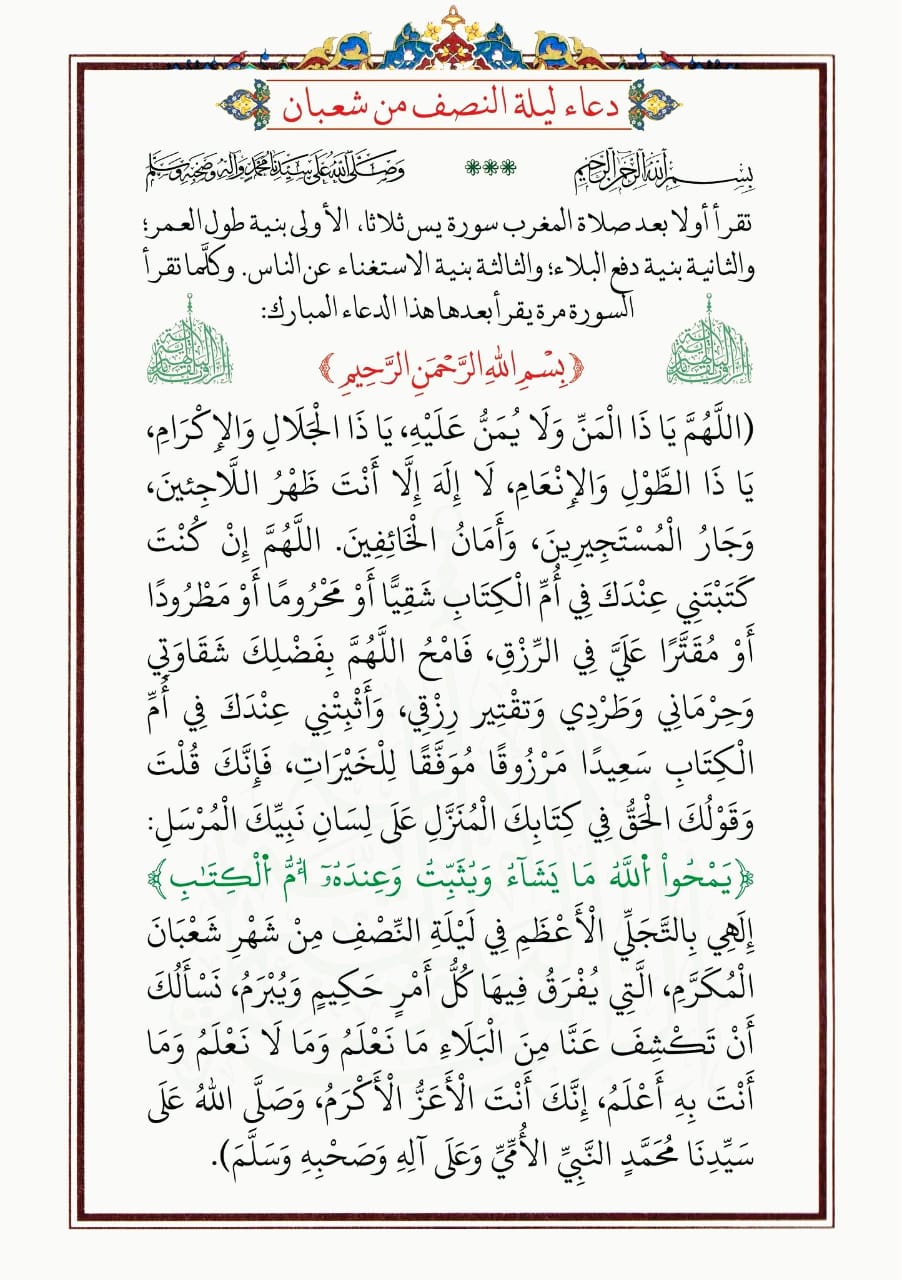 دعاء ليلة النصف من شعبان
بِسْمِ اللهِ الرَّحْمٰنِ الرَّحِيْمِ *** وَصَلَّى اللهُ عَلَى سَيِّدِنَا مُحَمَّدٍ وَآلِهِ وَصَحْبِهِ وَسَلَّمَ
تقرأ أولا بعد صلاة المغرب سورة يس ثلاثا، الأولى بنية طول العمر؛
والثانية بنية دفع البلاء؛ والثالثة بنية الاستغناء عن الناس. وكلَّما تقرأ
السورة مرة يقرأ بعدها هذا الدعاء المبارك:
﴿بِسْمِ اللهِ الرَّحْمَنِ الرَّحِيْمِ﴾
(اللَّهُمَّ يَا ذَا الْمَنِّ وَلَا يُمَنُّ عَلَيْهِ، يَا ذَا الْجَلَالِ وَالإِكْرَامِ،
يَا ذَا الطَّوْلِ وَالإِنْعَامِ، لَا إِلَهَ إِلَّا أَنْتَ ظَهْرُ اللَّاجِئينَ،
وَجَارُ الْمُسْتَجِيرِينَ، وَأَمَانُ الْخَائِفِينَ. اللَّهُمَّ إِنْ كُنْتَ
كَتَبْتَنِي عِنْدَكَ فِي أُمِّ الْكِتَابِ شَقِيًّا أَوْ مَحْرُومًا أَوْ مَطْرُودًا
أَوْ مُقَتَّرًا عَلَيَّ فِي الرِّزْقِ، فَامْحُ اللَّهُمَّ بِفَضْلِكَ شَقَاوَتِي
وَحِرْمَانِي وَطَرْدِي وَتَقْتِير رِزْقِي، وَأَثْبِتْنِي عِنْدَكَ فِي أُمِّ
الْكِتَابِ سَعِيدًا مَرْزُوقًا مُوَفَّقًا لِلْخَيْرَاتِ، فَإِنَّكَ قُلْتَ
وَقَوْلُكَ الْحَقُّ فِي كِتَابِكَ الْمُنَزَّلِ عَلَى لِسَانِ نَبِيِّكَ الْمُرْسَلِ:
﴿يَمْحُواْ اُ۬للَّهُ مَا يَشَآءُ وَيُثَبِّتُ وَعِندَهُۥٓ أُمُّ اُ۬لْكِتَٰبِ﴾
إِلَهِي بِالتَّجَلِّي الْأَعْظَمِ فِي لَيْلَةِ النِّصْفِ مِنْ شَهْرِ شَعْبَانَ
الْمُكَرَّمِ، الَّتِي يُفْرَقُ فِيهَا كُلُّ أَمْرٍ حَكِيمٍ وَيُبْرَمُ، نَسْأَلُكَ
أَنْ تَكْشِفَ عَنَّا مِنَ الْبَلَاءِ مَا نَعْلَمُ وَمَا لَا نَعْلَمُ وَمَا
أَنْتَ بِهِ أَعْلَمُ، إِنَّكَ أَنْتَ الْأَعَزُّ الْأَكْرَمُ، وَصَلَّى اللهُ عَلَى
سَيِّدِنَا مُحَمَّدٍ النَّبِيِّ الأُمِّيِّ وَعَلَى آلِهِ وَصَحْبِهِ وَسَلَّمَ).